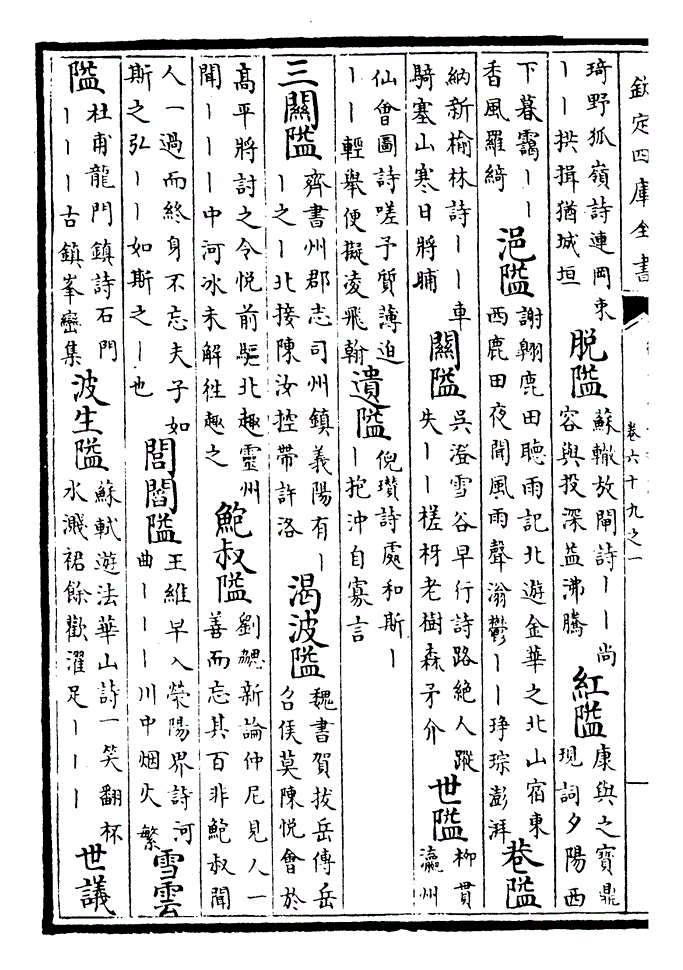 欽定四庫全書
卷六十九之一
琦野狐嶺詩連岡東
丨丨拱揖猶城垣
脱隘
蘇轍放閘詩丨丨尚
容與投深益沸騰
紅隘
康與之寶鼎
現詞夕陽西
下暮靄丨丨
香風羅綺
浥隘
謝翱鹿田聽雨記北遊金華之北山宿東
西鹿田夜聞風雨聲滃鬱丨丨琤琮澎湃
巷隘
納新榆林詩丨丨車
騎塞山寒日將晡
關隘
吳澄雪谷早行詩路絶人蹤
失丨丨槎枒老樹森矛介
世隘
柳貫
瀛州
仙會圖詩嗟予質薄迫
丨丨輕舉便擬凌飛翰
遺隘
倪瓚詩處和斯丨
丨抱沖自寡言
三關隘
齊書州郡志司州鎮義陽有丨
丨之丨北接陳汝控帶許洛
渴波隘
魏書賀拔岳傳岳
召侯莫陳悦會於
高平將討之令悦前驅北趣靈州
聞丨丨丨中河冰未解徃趣之
鮑叔隘
劉勰新論仲尼見人一
善而忘其百非鮑叔聞
人一過而終身不忘夫子如
斯之弘丨丨如斯之丨也
閭閻隘
王維早入滎陽界詩河
曲丨丨丨川中烟火繁
雪雲
隘
杜甫龍門鎮詩石門
丨丨丨古鎮峯巒集
波生隘
蘇軾遊法華山詩一笑翻杯
水濺裙餘歡濯足丨丨丨
世議